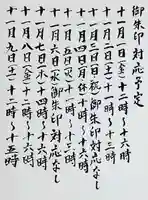 御朱印対応予定
十一月一日(金)十二時～十六時
十一月二日(土)十二時～十三時
十一月三日(日)祝 御朱印対応なし
十一月四日(月)休 十一時～十六時
十一月五日(火)十二時～十三時
十一月六日(水)御朱印対応なし
十一月七日(木)十四時～十六時
十一月八日(金)十二時～十六時
十一月九日(土)十二時～十五時